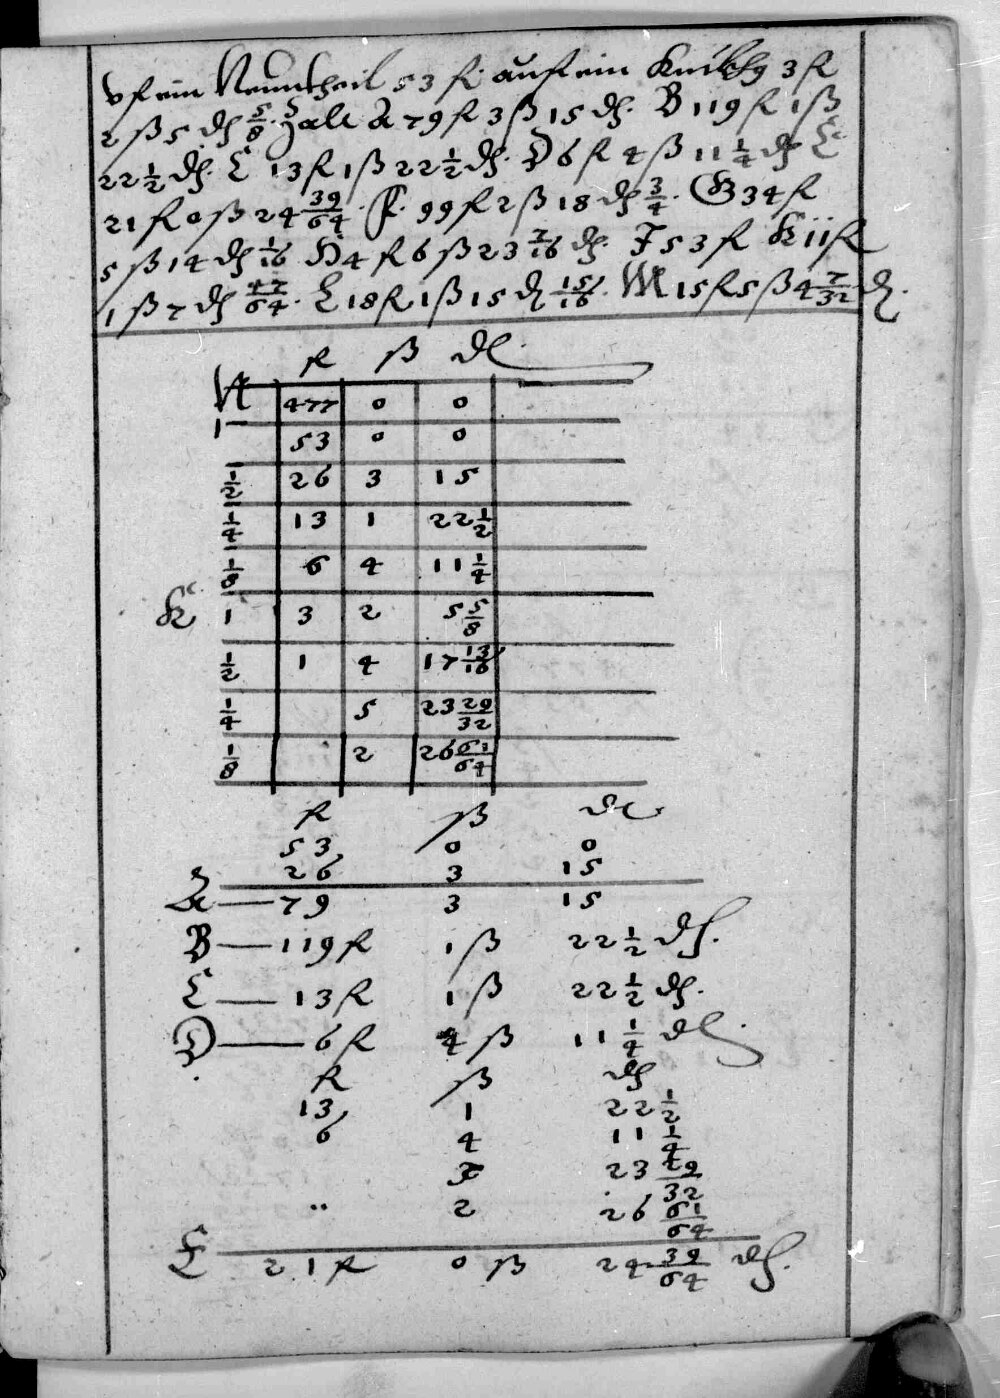 vf ein Neuntheil 53 fl. auf ein Kuckhs 3 fl
2 ß 5 dl 5/8. Zale A 79 fl 3 ß 15 dl. B 119 fl 1 ß
22 1/2 dl. C 13 fl 1 ß 22 1/2 dl. D 6 fl 4 ß 11 1/4 dl E
21 fl 0 ß 24 39/64. F. 99 fl 2 ß 18 dl 3/4. G 34 fl
5 ß 14 dl 1/16 H 4 fl 6 ß 23 7/16 dl. J 53 fl K 11 fl
1 ß 7 dl 47/64. L 18 fl 1 ß 15 dl 15/16. M 15 fl 5 ß 4 7/32 dl.
fl ß dl
477 0 0
1 53 0 0
1/2 26 3 15
1/4 13 1 22 1/2
1/8 6 4 11 1/4
K 1 3 2 5 5/8
1/2 1 4 17 13/16
1/4 5 23 29/32
1/8 2 26 61/64
fl ß dl
53 0 0
26 3 15
A 79 3 15
B 119 fl 1 ß 22 1/2 dl.
C 13 fl 1 ß 22 1/2 dl.
D 6 fl 4 ß 11 1/4 dl.
fl ß dl
13 1 22 1/2
6 4 11 1/4
5 23 29/32
.. 2 26 61/64
E 21 fl 0 ß 24 39/64 dl.